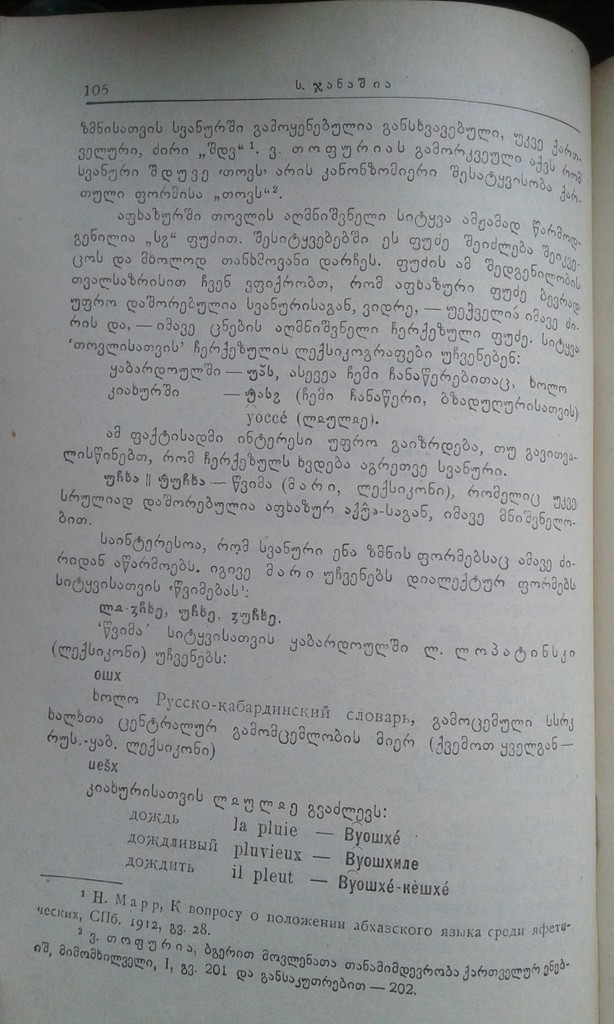 106
ს. ჯანაშია
ზმნისათვის სვანურში გამოყენებულია განსხვავებული, უკვე ქართ-
ველური, ძირი „შდვ“¹. ვ. თოფურიას გამორკვეული აქვს რომ
სვანური შდუვე ‘თოვს’ არის კანონზომიერი შესატყვისობა ქარ-
თული ფორმისა „თოვს“².
აფხაზურში თოვლის აღმნიშვნელი სიტყვა ამჟამად წარმოდ-
გენილია „სჷ“ ფუძით. შესიტყვებებში ეს ფუძე შეიძლება შეიკვე-
ცოს და მხოლოდ თანხმოვანი დარჩეს. ფუძის ამ შედგენილობის
თვალსაზრისით ჩვენ ვფიქრობთ, რომ აფხაზური ფუძე ბევრად
უფრო დაშორებულია სვანურისაგან, ვიდრე, — უეჭველია იმავე ძი-
რის და, — იმავე ცნების აღმნიშვნელი ჩერქეზული ფუძე. სიტყვა
‘თოვლისათვის’ ჩერქეზულის ლექსიკოგრაფები უჩვენებენ:
ყაბარდოულში — უა̄ს, ასევეა ჩემი ჩანაწერებითაც, ხოლო
კიახურში — (ჩემი ჩანაწერი, ბზადუღურისათვის)
уоссé (ლჲულჲე).
ამ ფაქტისადმი ინტერესი უფრო გაიზრდება, თუ გავითვა-
ლისწინებთ, რომ ჩერქეზულს ხვდება აგრეთვე სვანური.
უჩხა || ჭუჩხა — წვიმა (მარი, ლექსიკონი), რომელიც უკვე
სრულიად დაშორებულია აფხაზურ -საგან, იმავე მნიშვნელო-
ბით.
საინტერესოა, რომ სვანური ენა ზმნის ფორმებსაც ამავე ძი-
რიდან აწარმოებს. იგივე მარი უჩვენებს დიალექტურ ფორმებს
სიტყვისათვის ‘წვიმებას’:
უჩხე,
‘წვიმა’ სიტყვისათვის ყაბარდოულში ლ. ლოპატინსკი
(ლექსიკონი) უჩვენებს:
ошх
ხოლო Русско-кабардинский словарь, გამოცემული სსრკ
ხალხთა ცენტრალურ გამომცემლობის მიერ (ქვემოთ ყველგან —
რუს.-ყაბ. ლექსიკონი)
uešx
კიახურისათვის ლჲულჲე გვაძლევს:
дождь la pluie — Вŷошхé
дождливый pluvieux — Вŷошхиле
дождить il pleut — Вŷошхé-кèшхé
¹ Н. Марр, К вопросу о положении абхазского языка среди яфети-
ческих, СПб. 1912, გვ. 28.
² ვ. თოფურია, ბგერით მოვლენათა თანამიმდევრობა ქართველურ ენებ-
ში, მიმომხილველი, I, გვ. 201 და განსაკუთრებით — 202.